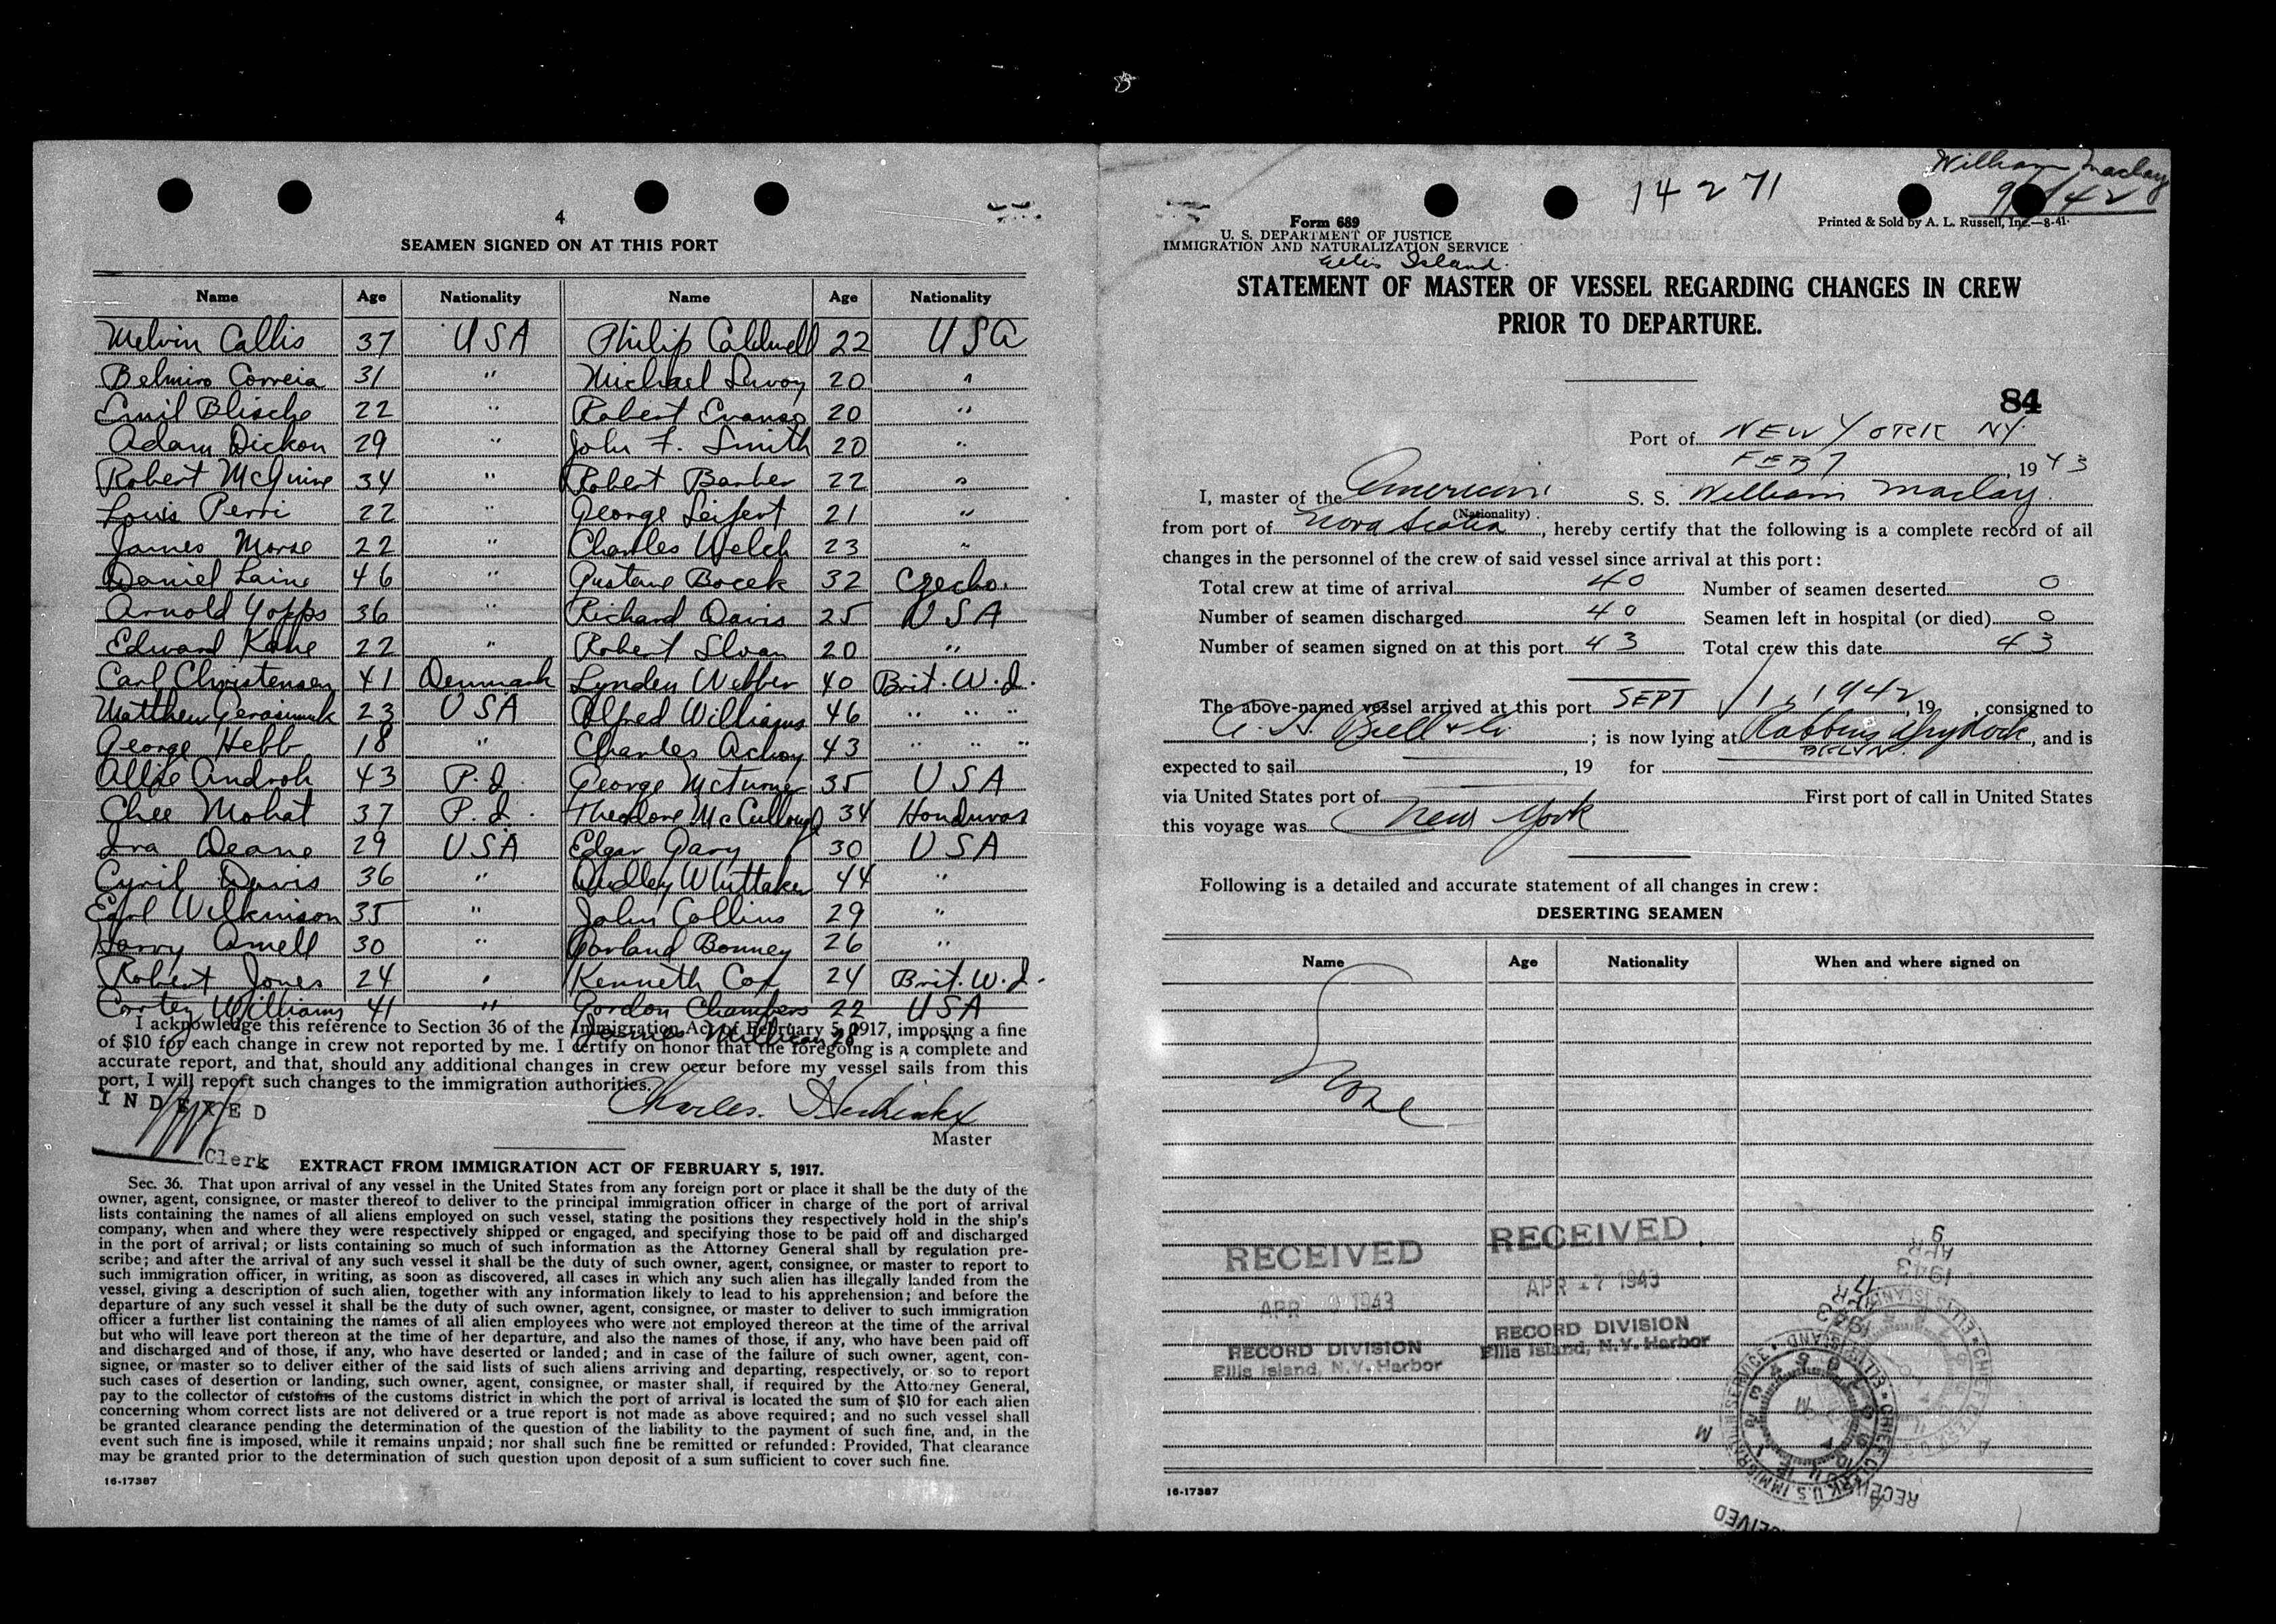 4
SEAMEN SIGNED ON AT THIS PORT
Name Age Nationality Name Age Nationality
Melvin Callis 37 USA Philip Caldwell 22 USA
Belmiro Correia 31 " Michael 20 "
Emil Blische 22 " Robert Evanso 20 "
Adam Dickon 29 " John F. Smith 20 "
Robert McGuire 34 " Robert Barber 22 "
Louis Perri 22 " George Seifert 21 "
James Morse 22 " Charles Welch 23 "
Daniel Laine 46 " Gustave Bocek 32 Czecho.
Arnold Yopps 36 " Richard Davis 25 USA
Edward Kane 22 " Robert Sloan 20 "
Carl Christensen 41 Denmark Lynden Webber 40 Brit. W. I.
Matthew 23 USA Alfred Williams 46 " " "
George Hebb 18 " Charles Achoy 43 " " "
Allie Androh 43 P. I. George McTurner 35 USA
Chee Mohat 37 P. I. Theodore McCullough 34 Honduras
Ira Deane 29 USA Edgar Gary 30 USA
Cyril Davis 36 " Dudley Whittaker 44 "
Earl Wilkinson 35 " John Collins 29 "
Harry Arnell 30 " Garland Bonney 26 "
Robert Jones 24 " Kenneth Cox 24 Brit. W. I.
Cortez Williams 41 " Gordon Chambers 22 USA
James 28 "
I acknowledge this reference to Section 36 of the Immigration Act of February 5, 1917, imposing a fine
of $10 for each change in crew not reported by me. I certify on honor that the foregoing is a complete and
accurate report, and that, should any additional changes in crew occur before my vessel sails from this
port, I will report such changes to the immigration authorities.
INDEXED
Charles
Master
Clerk
EXTRACT FROM IMMIGRATION ACT OF FEBRUARY 5, 1917.
Sec. 36. That upon arrival of any vessel in the United States from any foreign port or place it shall be the duty of the
owner, agent, consignee, or master thereof to deliver to the principal immigration officer in charge of the port of arrival
lists containing the names of all aliens employed on such vessel, stating the positions they respectively hold in the ship's
company, when and where they were respectively shipped or engaged, and specifying those to be paid off and discharged
in the port of arrival; or lists containing so much of such information as the Attorney General shall by regulation pre-
scribe; and after the arrival of any such vessel it shall be the duty of such owner, agent, consignee, or master to report to
such immigration officer, in writing, as soon as discovered, all cases in which any such alien has illegally landed from the
vessel, giving a description of such alien, together with any information likely to lead to his apprehension; and before the
departure of any such vessel it shall be the duty of such owner, agent, consignee, or master to deliver to such immigration
officer a further list containing the names of all alien employees who were not employed thereon at the time of the arrival
but who will leave port thereon at the time of her departure, and also the names of those, if any, who have been paid off
and discharged and of those, if any, who have deserted or landed; and in case of the failure of such owner, agent, con-
signee, or master so to deliver either of the said lists of such aliens arriving and departing, respectively, or so to report
such cases of desertion or landing, such owner, agent, consignee, or master shall, if required by the Attorney General,
pay to the collector of customs of the customs district in which the port of arrival is located the sum of $10 for each alien
concerning whom correct lists are not delivered or a true report is not made as above required; and no such vessel shall
be granted clearance pending the determination of the question of the liability to the payment of such fine, and, in the
event such fine is imposed, while it remains unpaid; nor shall such fine be remitted or refunded: Provided, That clearance
may be granted prior to the determination of such question upon deposit of a sum sufficient to cover such fine.
16-17387
William Maclay
14271
9/1/42
Form 689
U. S. DEPARTMENT OF JUSTICE
IMMIGRATION AND NATURALIZATION SERVICE
Ellis Island.
Printed & Sold by A. L. Russell, Inc.—8-41.
STATEMENT OF MASTER OF VESSEL REGARDING CHANGES IN CREW
PRIOR TO DEPARTURE.
84
Port of NEW YORK NY.
FEB 7, 1943
I, master of the American S. S. William Maclay.
(Nationality)
from port of Nova Scotia, hereby certify that the following is a complete record of all
changes in the personnel of the crew of said vessel since arrival at this port:
Total crew at time of arrival 40 Number of seamen deserted 0
Number of seamen discharged 40 Seamen left in hospital (or died) 0
Number of seamen signed on at this port 43 Total crew this date 43
The above-named vessel arrived at this port SEPT 1, 1942, 19 , consigned to
A. H. Bull & Co.; is now lying at Robbins Drydock, and is
BKLYN.
expected to sail , 19 for
via United States port of First port of call in United States
this voyage was New York
Following is a detailed and accurate statement of all changes in crew:
DESERTING SEAMEN
Name Age Nationality When and where signed on
None
RECEIVED
APR 9 1943
RECORD DIVISION
Ellis Island, N.Y. Harbor
RECEIVED
APR 17 1943
RECORD DIVISION
Ellis Island, N.Y. Harbor
1943
APR
9
1943
APR
17
CHIEF CLERK U.S. IMMIGRATION SERVICE • ELLIS ISLAND
M
RECEIVED
16-17387